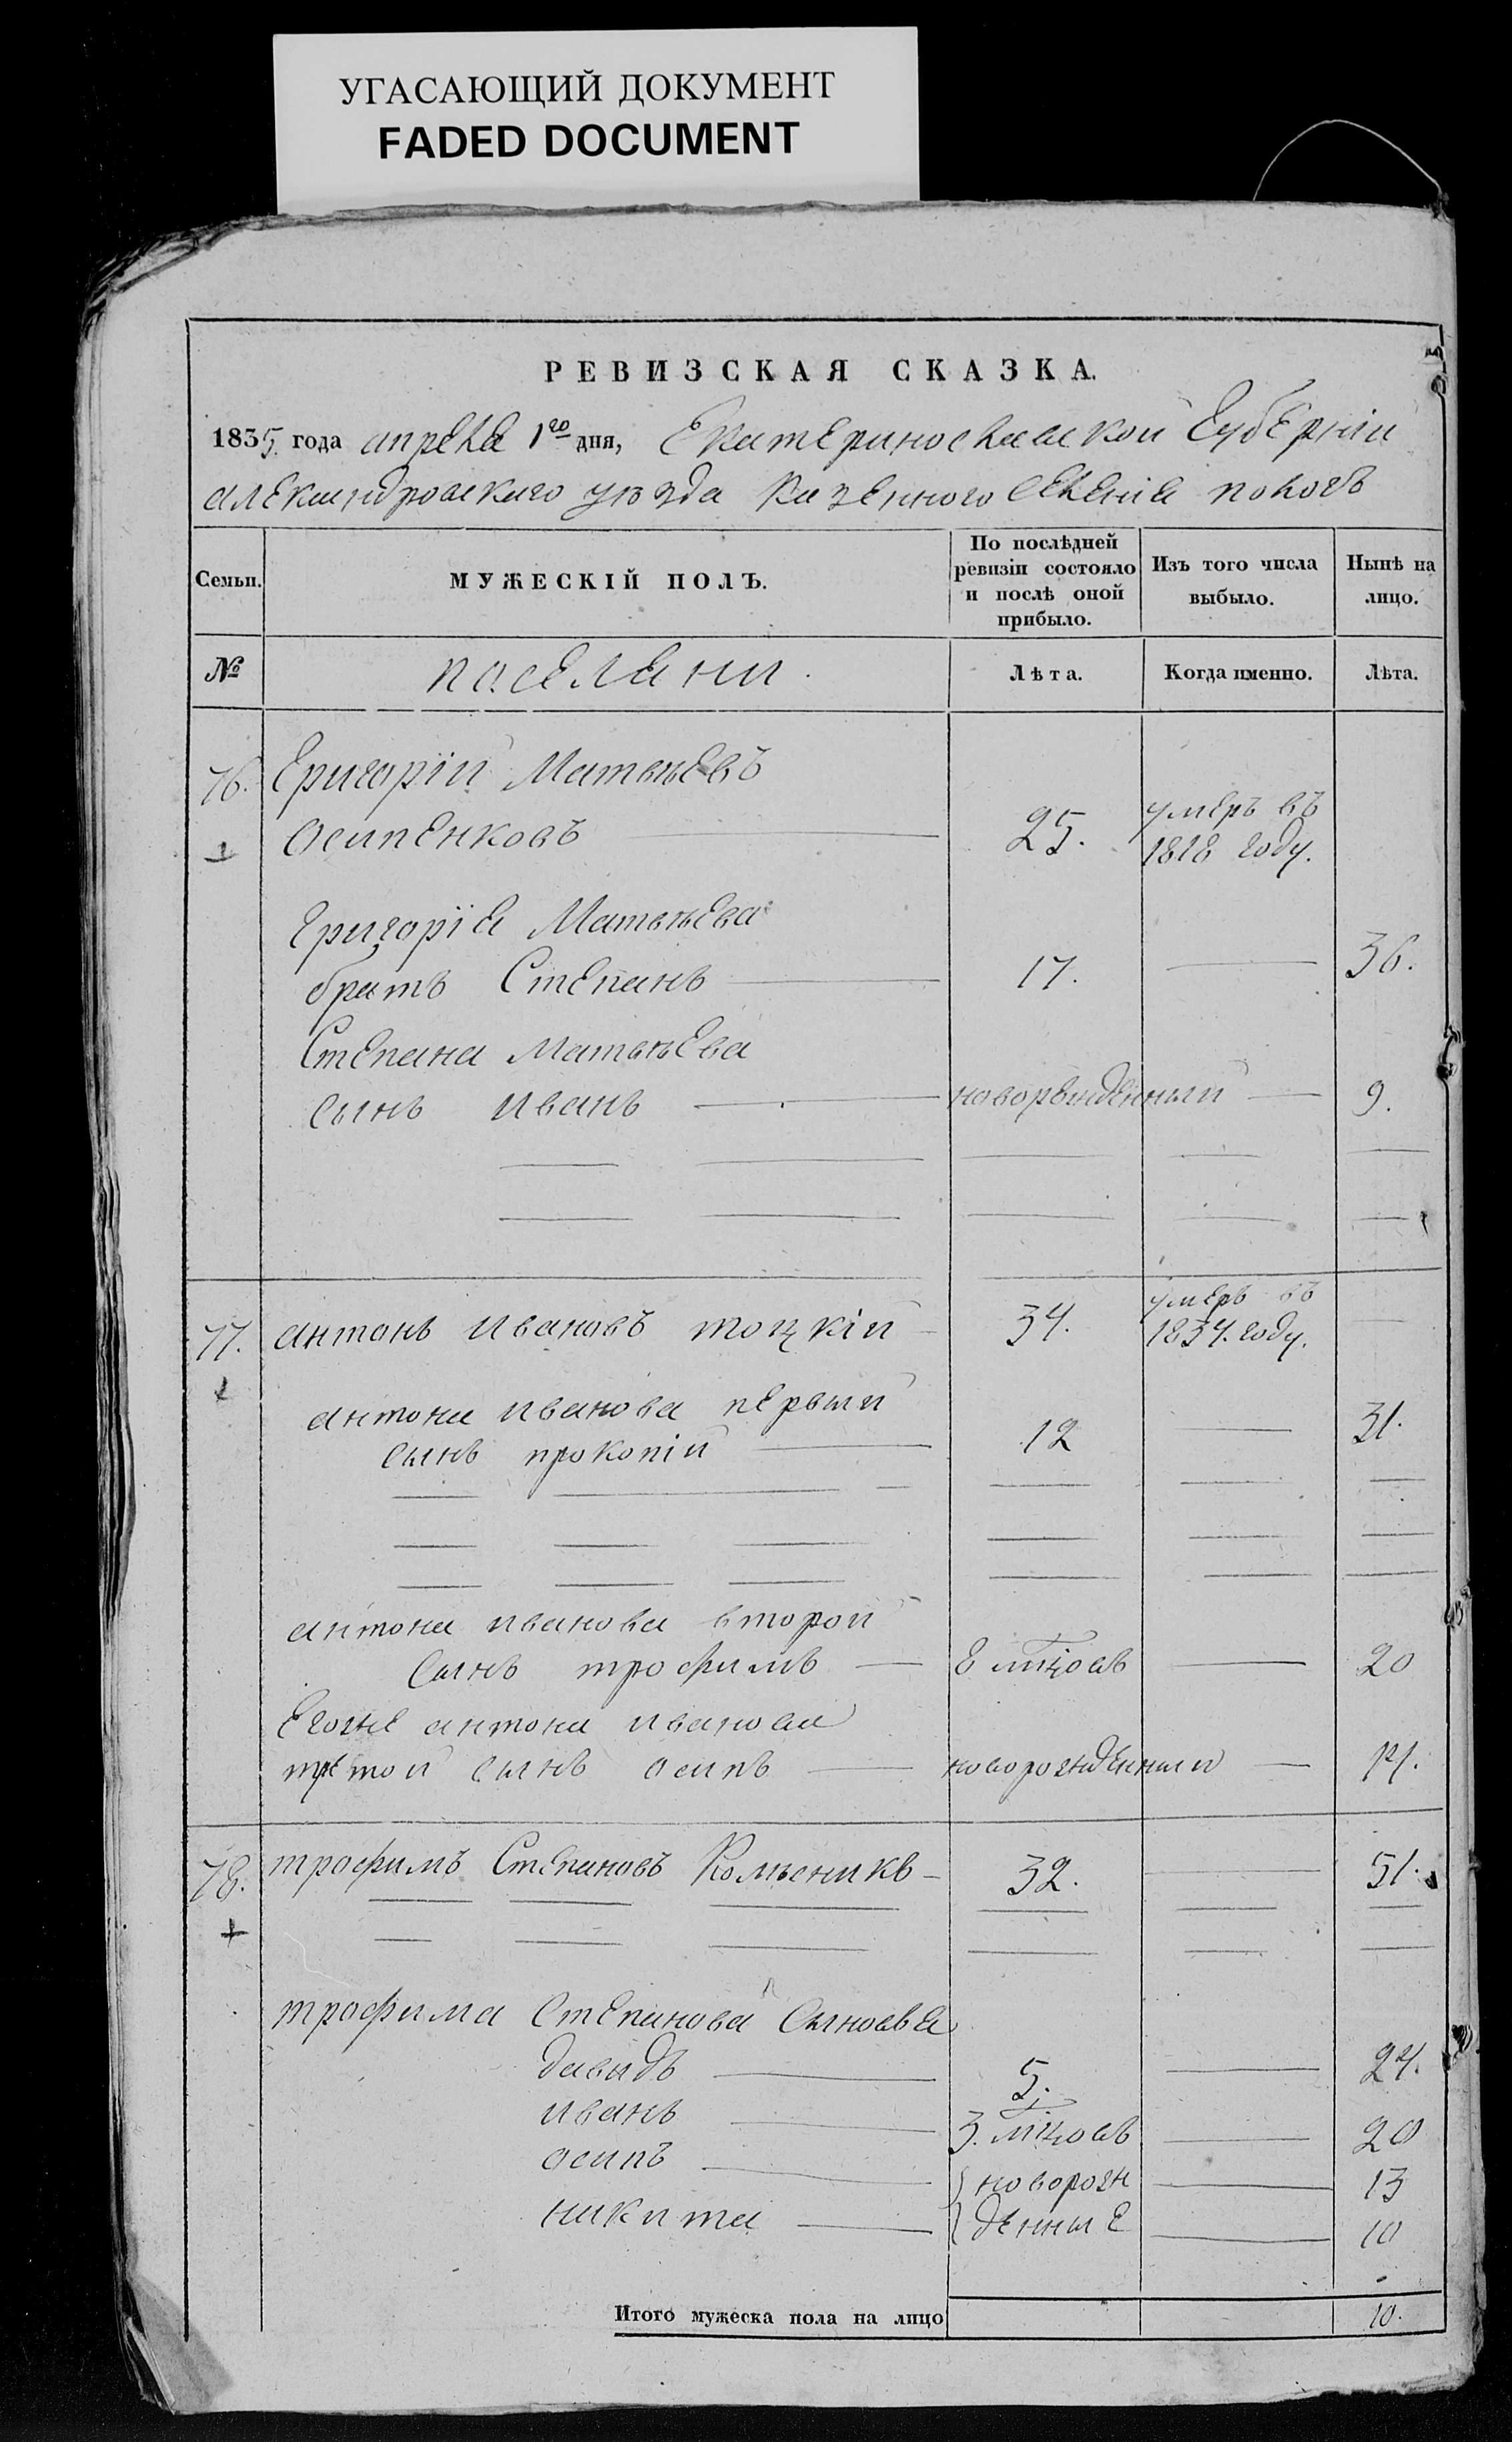 УГАСАЮЩИЙ ДОКУМЕНТ
FADED DOCUMENT
РЕВИЗСКАЯ СКАЗКА.
1835. года апреля 1го дня, Екатеринослаской Губернии
александровского уезда казенного селения пологъ
Семьи. МУЖЕСКІЙ ПОЛЪ. По послѣдней ревизіи состояло и послѣ оной прибыло. Изъ того числа выбыло. Нынѣ на лицо.
№ поселяни. Лѣта. Когда именно. Лѣта.
76. Григорій Матвѣевъ
Осипенковъ 25. умеръ въ 1818 году.
Григорія Матвѣева
братъ Степанъ 17. 36.
Степана Матвѣева
сынъ иванъ новорожденный 9.
77. антонъ ивановъ тоцкій 34. умеръ въ 1834. году.
антона иванова первый
сынъ прокопій 12 31.
антона иванова второй
сынъ трофимъ 8 мцовъ 20
Егоже антона иванова
третой сынъ осипъ новорожденный 14.
78. трофимъ Степановъ Колѣсникъ 32. 51.
трофима Степанова Сыновья
давыдъ 5. 24.
иванъ 3. мцовъ 20
осипъ новорож 13
никита денные 10
Итого мужеска пола на лицо 10.